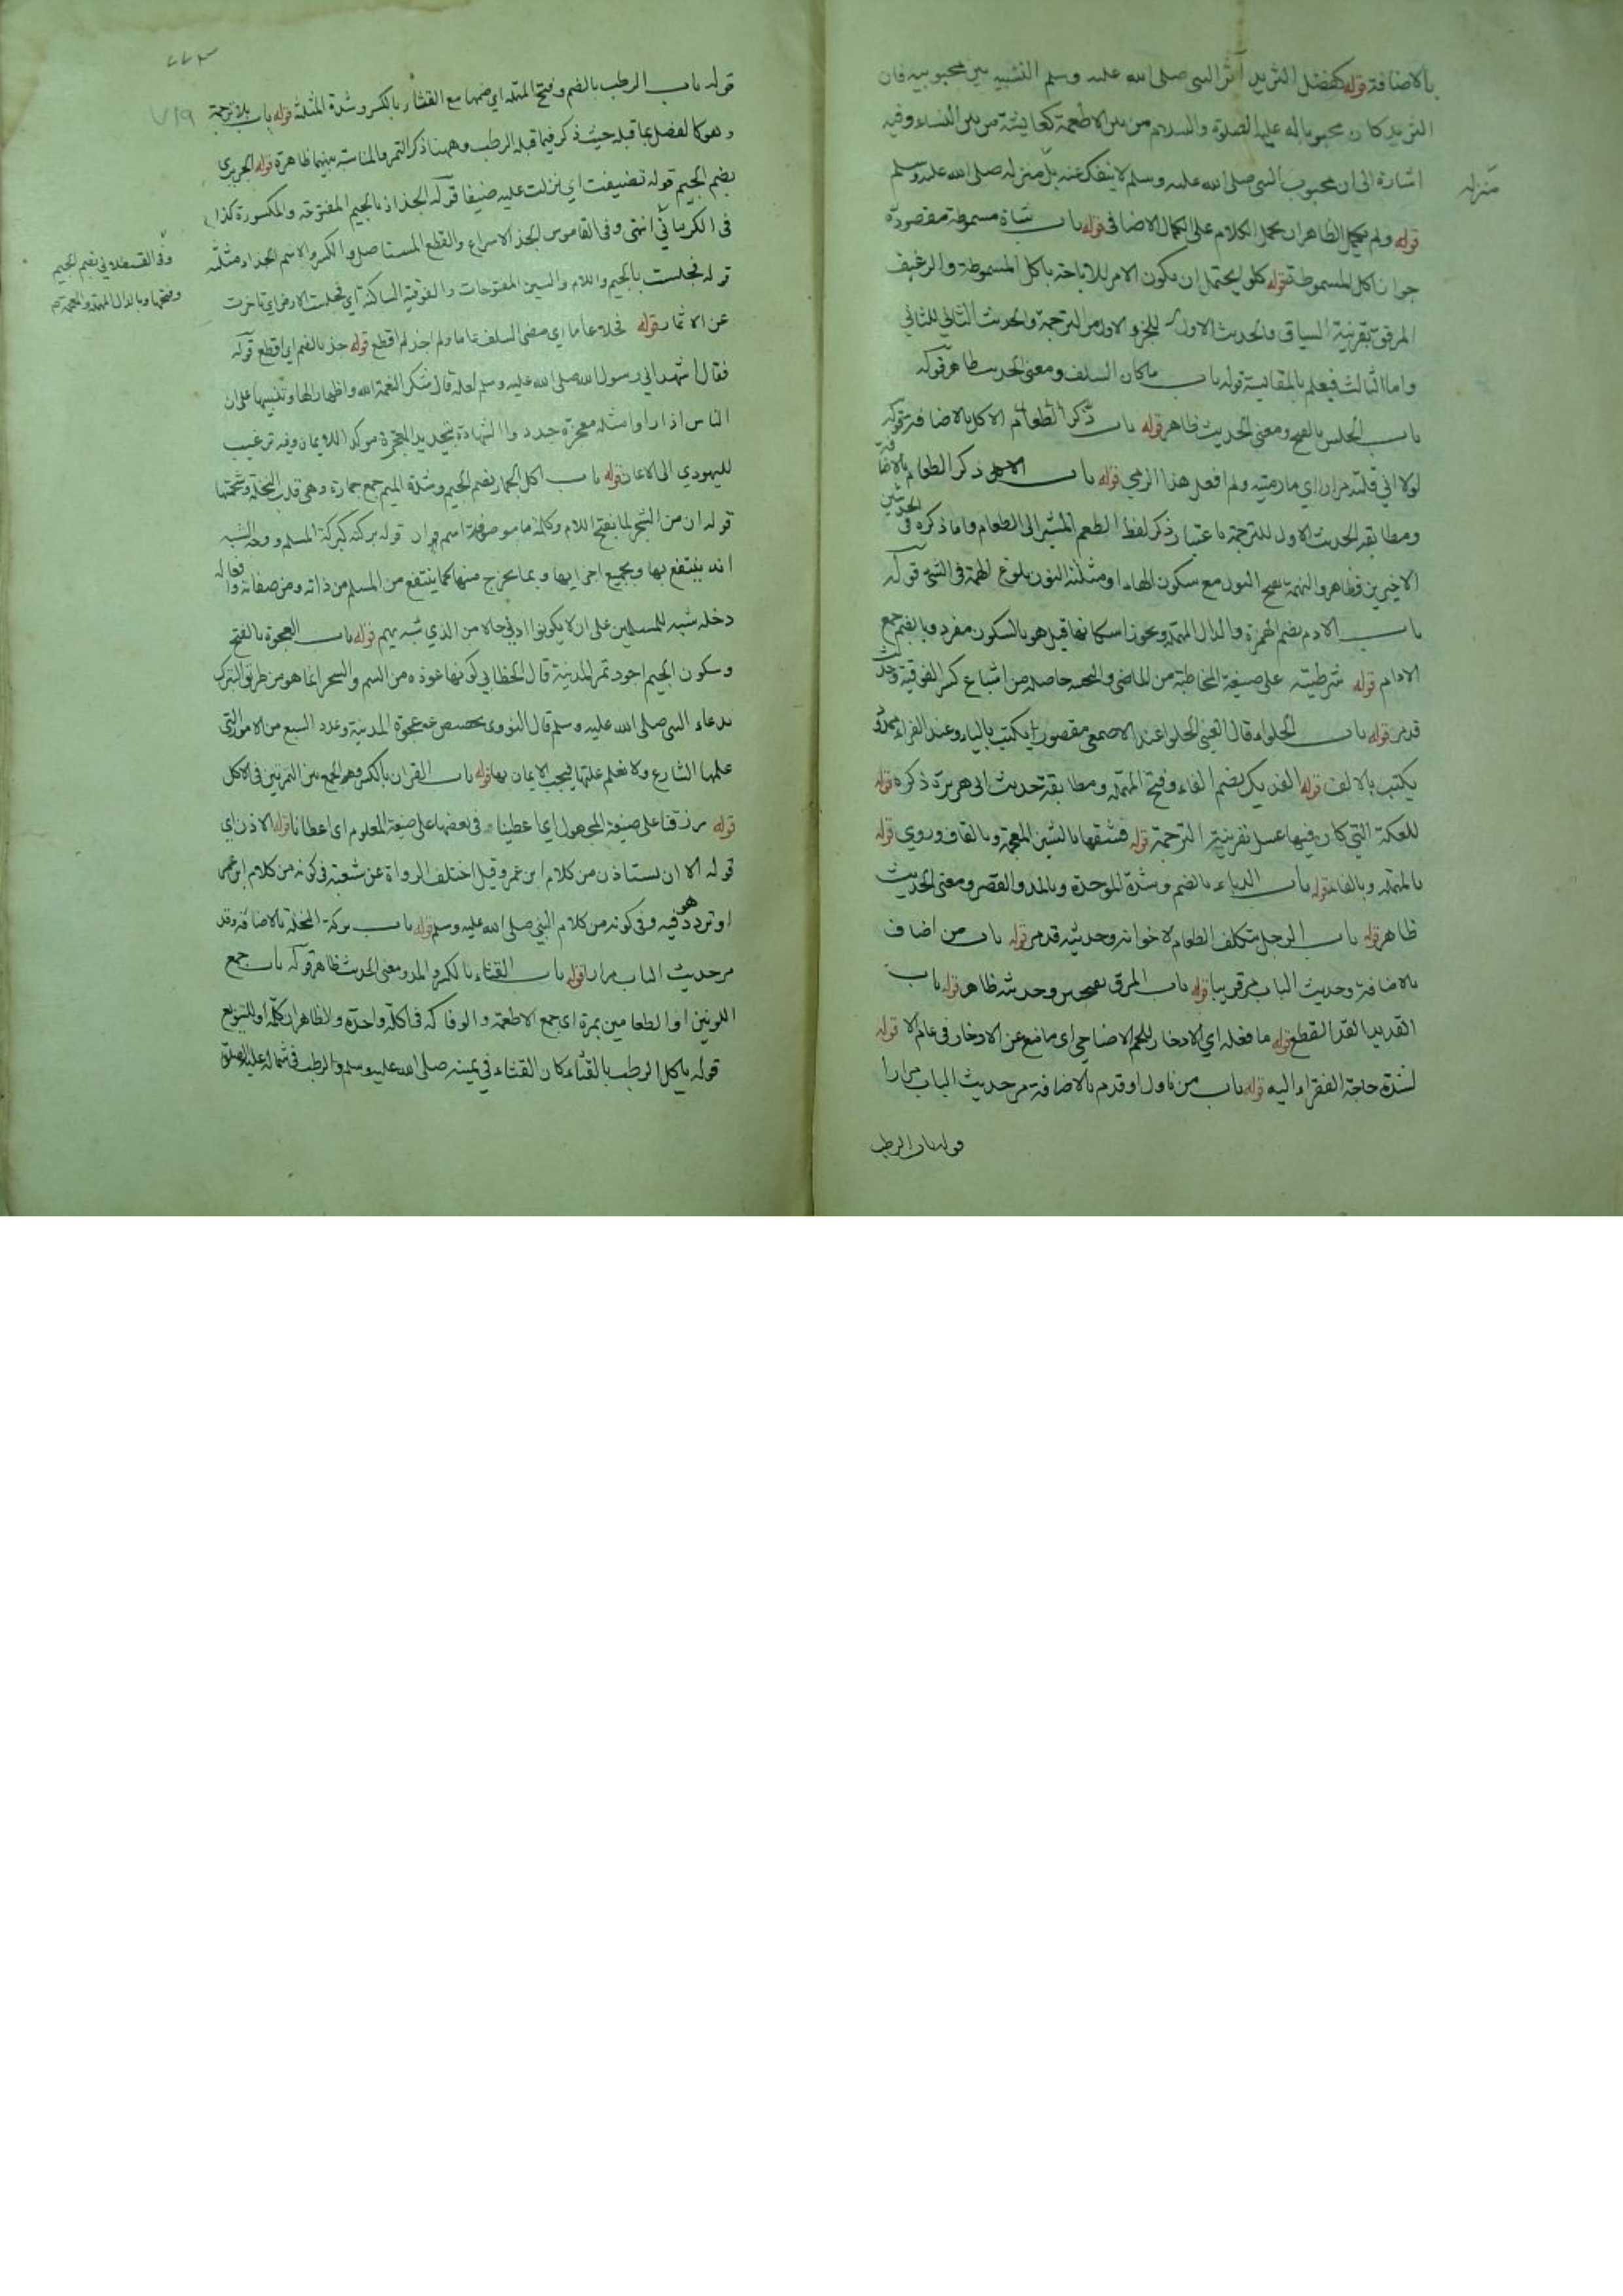 بالاضافة قوله كفضل الثريد آثر النبي صلى الله عليه وسلم التشبيه بين محبوبيه فان
الثريد كان محبوبا له عليه الصلوة والسلام من بين الاطعمة كعايشة من بين النساء وفيه
اشارة الى ان محبوب النبي صلى الله عليه وسلم لا ينفك عنه بل منزله صلى الله عليه وسلم
منزله
قوله ولم الظاهر ان يحمل الكلام على الكمال الاضافى قوله باب شاة مسموطة مقصوده
جواز اكل المسموطة قوله كلوا يحتمل ان يكون الامر للاباحة باكل المسموطة والرغيف
المرقق بقرينة السياق والحديث الاول للجزو الاول من الترجمة والحديث الثاني للثاني
واما الثالث فيعلم بالمقايسة قوله باب ماكان السلف ومعنى الحديث ظاهر قوله
باب الحلس بالفتح ومعنى الحديث ظاهر قوله باب ذكر الطعام الاكل بالاضافة قوله
لولا اني قلته مرارا اي مارميته ولم افعل هذا الرمي قوله باب ذكر الطعام بالاضافة
ومطابقة الحديث الاول للترجمة باعتبار ذكر لفظ الطعم المشير الى الطعام وما ذكره فى الحديثين
الاخيرين فظاهر والنهمة بفتح النون مع سكون الهاء او مثلثة النون بلوغ الهمة فى الشئ قوله
باب الادم بضم الهمزة والدال المهملة ويجوز اسكانها قيل هو بالسكون مفرد وبالضم جمع
الادام قوله شرطيته على صيغة المخاطبة من الماضى والتحتية حاصلة من اشباع كسر الفوقية وحديث
قد مر قوله باب الحلواء قال العيني الحلوا عند الاصمعى مقصور يكتب بالياء وعند الفراء ممدود
يكتب بالالف قوله الفديك بضم الفاء وفتح المهملة ومطابقة حديث ابى هريرة ذكره قوله
للعكة التي كان فيها عسل بقرينة الترجمة قوله فشقها بالشين المعجمة وبالقاف وروي قوله
بالمهملة وبالفاء قوله باب الدباء بالضم وشدة الموحدة وبالمد والقصر ومعنى الحديث
ظاهر قوله باب الرجل يتكلف الطعام لاخوانه وحديثه قد مر قوله باب من اضاف
بالاضافة وحديث الباب مر قريبا قوله باب المرق بفتحتين وحديثه ظاهر قوله باب
القديد القد القطع قوله ما فعله اي الادخار للحم الاضاحي اى ما منع عن الادخار فى عام الا قوله
لشدة حاجة الفقراء اليه قوله باب من ناول او قدم بالاضافة مر حديث الباب مرارا
قوله باب الرطب
٢٢٣
٧١٩
قوله باب الرطب بالضم وفتح المهملة اي ضمها مع القثاء بالكسر وشدة المثلثة قوله باب بلا ترجمة
وهو كالفصل بما قبله حيث ذكر فيما قبله الرطب وههنا ذكر التمر والمناسبة بينهما ظاهرة قوله الجريرى
بضم الجيم قوله تضيفت اي نزلت عليه ضيفا قوله الجذاذ بالجيم المفتوحة والمكسورة كذا
فى الكرمانى انتهى وفى القاموس الجذ الاسراع والقطع المستاصل والكسر والاسم الجذاذ مثلثة
وفى القسطلاني بضم الجيم
وفتحها وبالدال المهملة والمعجمة
قوله فجلست بالجيم واللام والسين المفتوحات والفوقية الساكنة اي فجلست الارض اي تاخرت
عن الاثمار قوله فخلا عاما اي مضى السلف عاما ولم اجذ لم اقطع قوله جذ بالضم اي اقطع قوله
فقال اشهد اني رسول الله صلى الله عليه وسلم لعله قال شكر النعمة الله واظهارا لها وتنبيها على ان
الناس اذا راوا مثله معجزة جددوا الشهادة بتجديد المعجزة موكد اللايمان وفيه ترغيب
لليهودي الى الايمان قوله باب اكل الجمار بضم الجيم وشدة الميم جمع جمارة وهى قلب النخلة وشحمتها
قوله ان من الشجر لما بفتح اللام وكلمة ما موصوفة اسم ان قوله بركته كبركة المسلم وجه الشبه
انه ينتفع بها وبجميع اجزائها وبما يخرج منها كما ينتفع من المسلم من ذاته ومن صفاته وافعاله
دخله شبه للمسلمين على ان لا يكونوا ادنى حالا من الذي شبه بهم قوله باب العجوة بالفتح
وسكون الجيم اجود تمر المدينة قال الخطابي كونها عوذة من السم والسحر انما هو من طريق التبرك
بدعاء النبي صلى الله عليه وسلم قال النووى تخصيص عجوة المدينة وعدد السبع من الامور التى
علمها الشارع ولا نعلم علتها فيجب الايمان بها قوله باب القران بالكسر وهو الجمع بين التمرتين فى الاكل
قوله رزقنا على صيغة المجهول اي اعطينا وفى بعضها على صيغة المعلوم اى اعطانا قوله الاذن اي
قوله الا ان يستاذن من كلام ابن عمر وقيل اختلف الرواة عن شعبة فى كونه من كلام ابن عمر
او تردد هو فيه وفى كونه من كلام النبي صلى الله عليه وسلم قوله باب بركة النخلة بالاضافة وقد
مر حديث الباب مرارا قوله باب القثاء بالكسر والمد ومعنى الحديث ظاهر قوله باب جمع
اللونين او الطعامين بمرة اى جمع الاطعمة والوفاكه فى اكلة واحدة والظاهر ان كلمة او للتنويع
قوله ياكل الرطب بالقثاء كان القثاء فى يمينه صلى الله عليه وسلم والرطب فى شماله عليه الصلوة